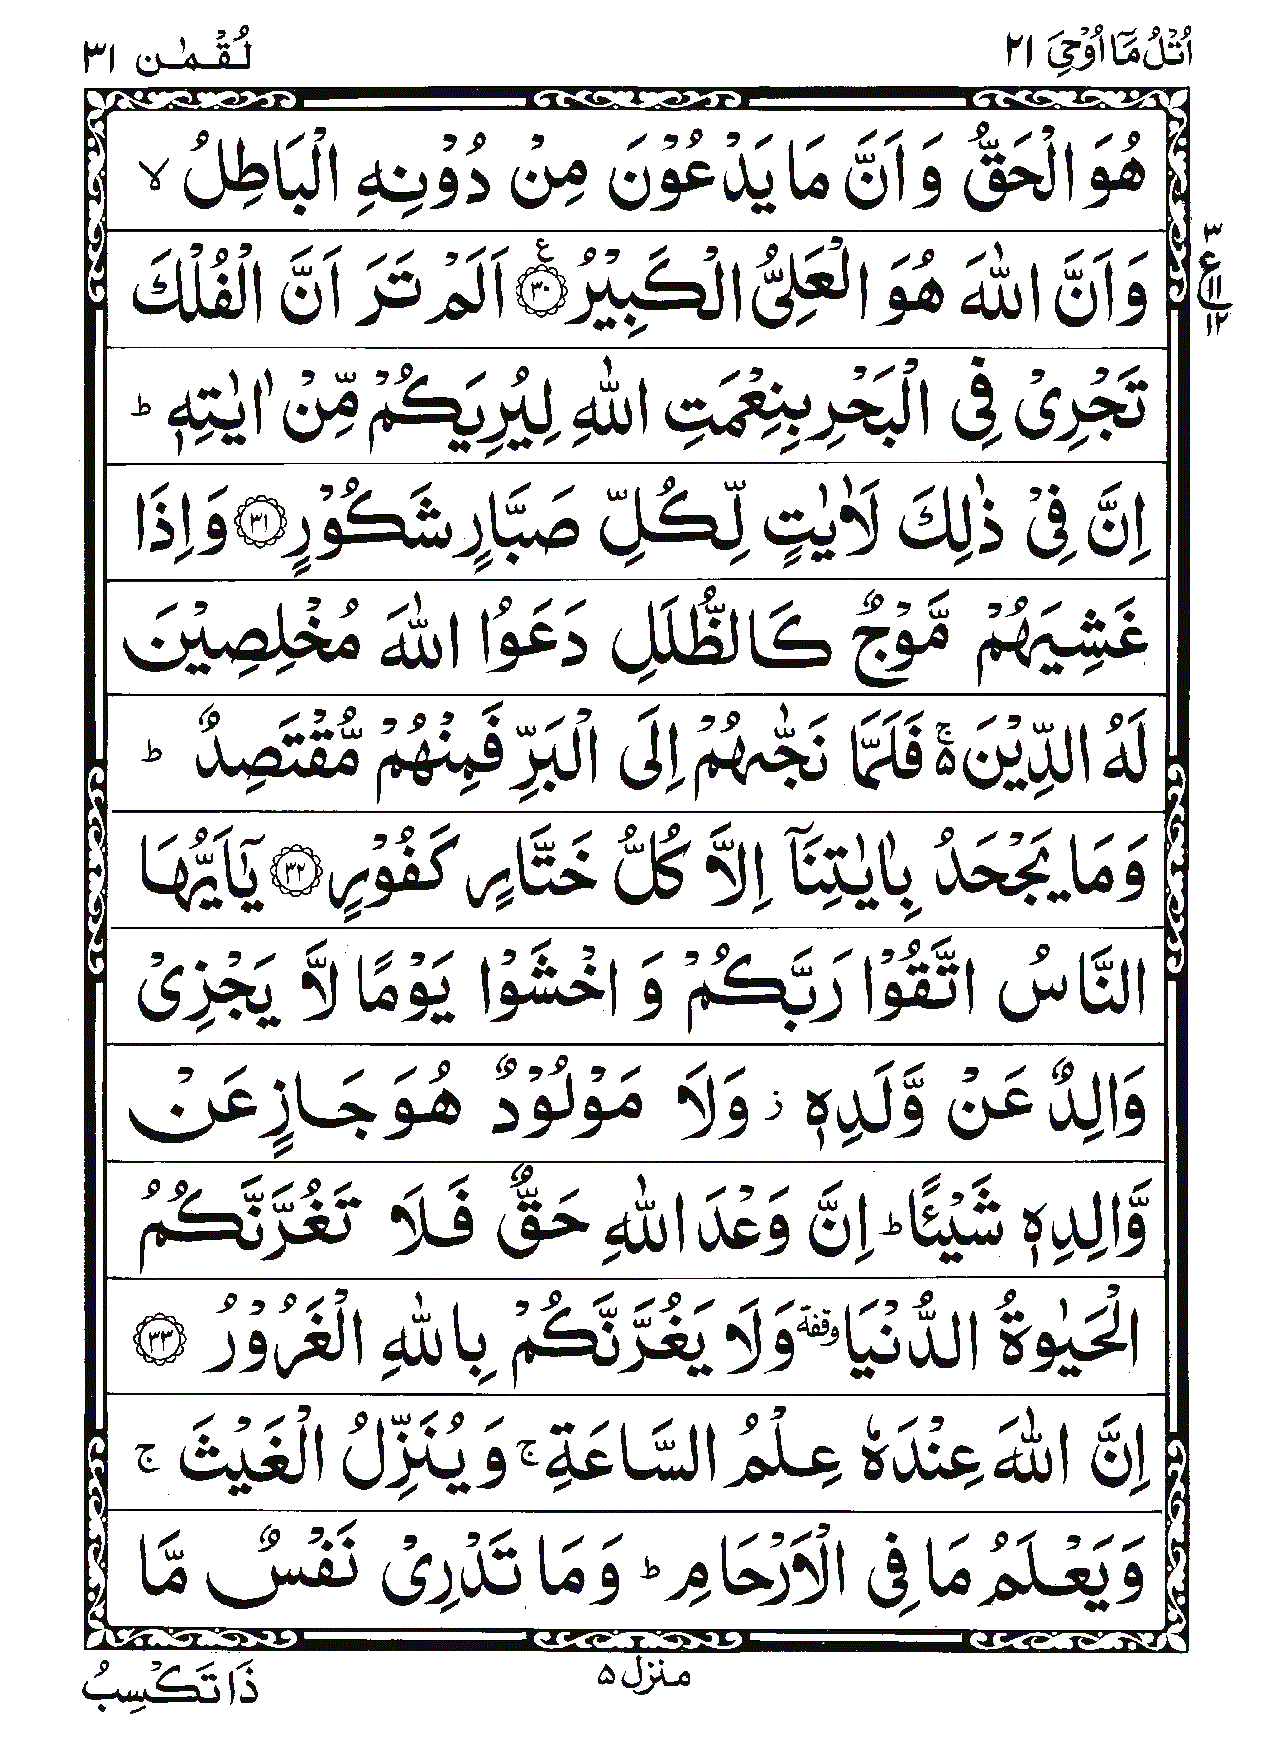 اُتْلُ مَآ اُوْحِیَ ٢١ لُقْمٰن ٣١
هُوَ الْحَقُّ وَ اَنَّ مَا یَدْعُوْنَ مِنْ دُوْنِهِ الْبَاطِلُ ۙ
وَاَنَّ اللّٰهَ هُوَ الْعَلِیُّ الْكَبِیْرُ ﴿٣٠﴾ ع اَلَمْ تَرَ اَنَّ الْفُلْكَ
٣ ع ١١ ١٢
تَجْرِیْ فِی الْبَحْرِ بِنِعْمَتِ اللّٰهِ لِیُرِیَكُمْ مِّنْ اٰیٰتِهٖ ؕ
اِنَّ فِیْ ذٰلِكَ لَاٰیٰتٍ لِّكُلِّ صَبَّارٍ شَكُوْرٍ ﴿٣١﴾ وَاِذَا
غَشِیَهُمْ مَّوْجٌ كَالظُّلَلِ دَعَوُا اللّٰهَ مُخْلِصِیْنَ
لَهُ الدِّیْنَ ۵ۚ فَلَمَّا نَجّٰىهُمْ اِلَی الْبَرِّ فَمِنْهُمْ مُّقْتَصِدٌ ؕ
وَمَا یَجْحَدُ بِاٰیٰتِنَآ اِلَّا كُلُّ خَتَّارٍ كَفُوْرٍ ﴿٣٢﴾ یٰۤاَیُّهَا
النَّاسُ اتَّقُوْا رَبَّكُمْ وَ اخْشَوْا یَوْمًا لَّا یَجْزِیْ
وَالِدٌ عَنْ وَّلَدِهٖ ز وَلَا مَوْلُوْدٌ هُوَ جَازٍ عَنْ
وَّالِدِهٖ شَیْئًا ؕ اِنَّ وَعْدَ اللّٰهِ حَقٌّ فَلَا تَغُرَّنَّكُمُ
الْحَیٰوةُ الدُّنْیَا وقفة وَلَا یَغُرَّنَّكُمْ بِاللّٰهِ الْغَرُوْرُ ﴿٣٣﴾
اِنَّ اللّٰهَ عِنْدَهٗ عِلْمُ السَّاعَةِ ۚ وَ یُنَزِّلُ الْغَیْثَ ۚ
وَیَعْلَمُ مَا فِی الْاَرْحَامِ ؕ وَمَا تَدْرِیْ نَفْسٌ مَّا
منزل ۵
ذَا تَكْسِبُ